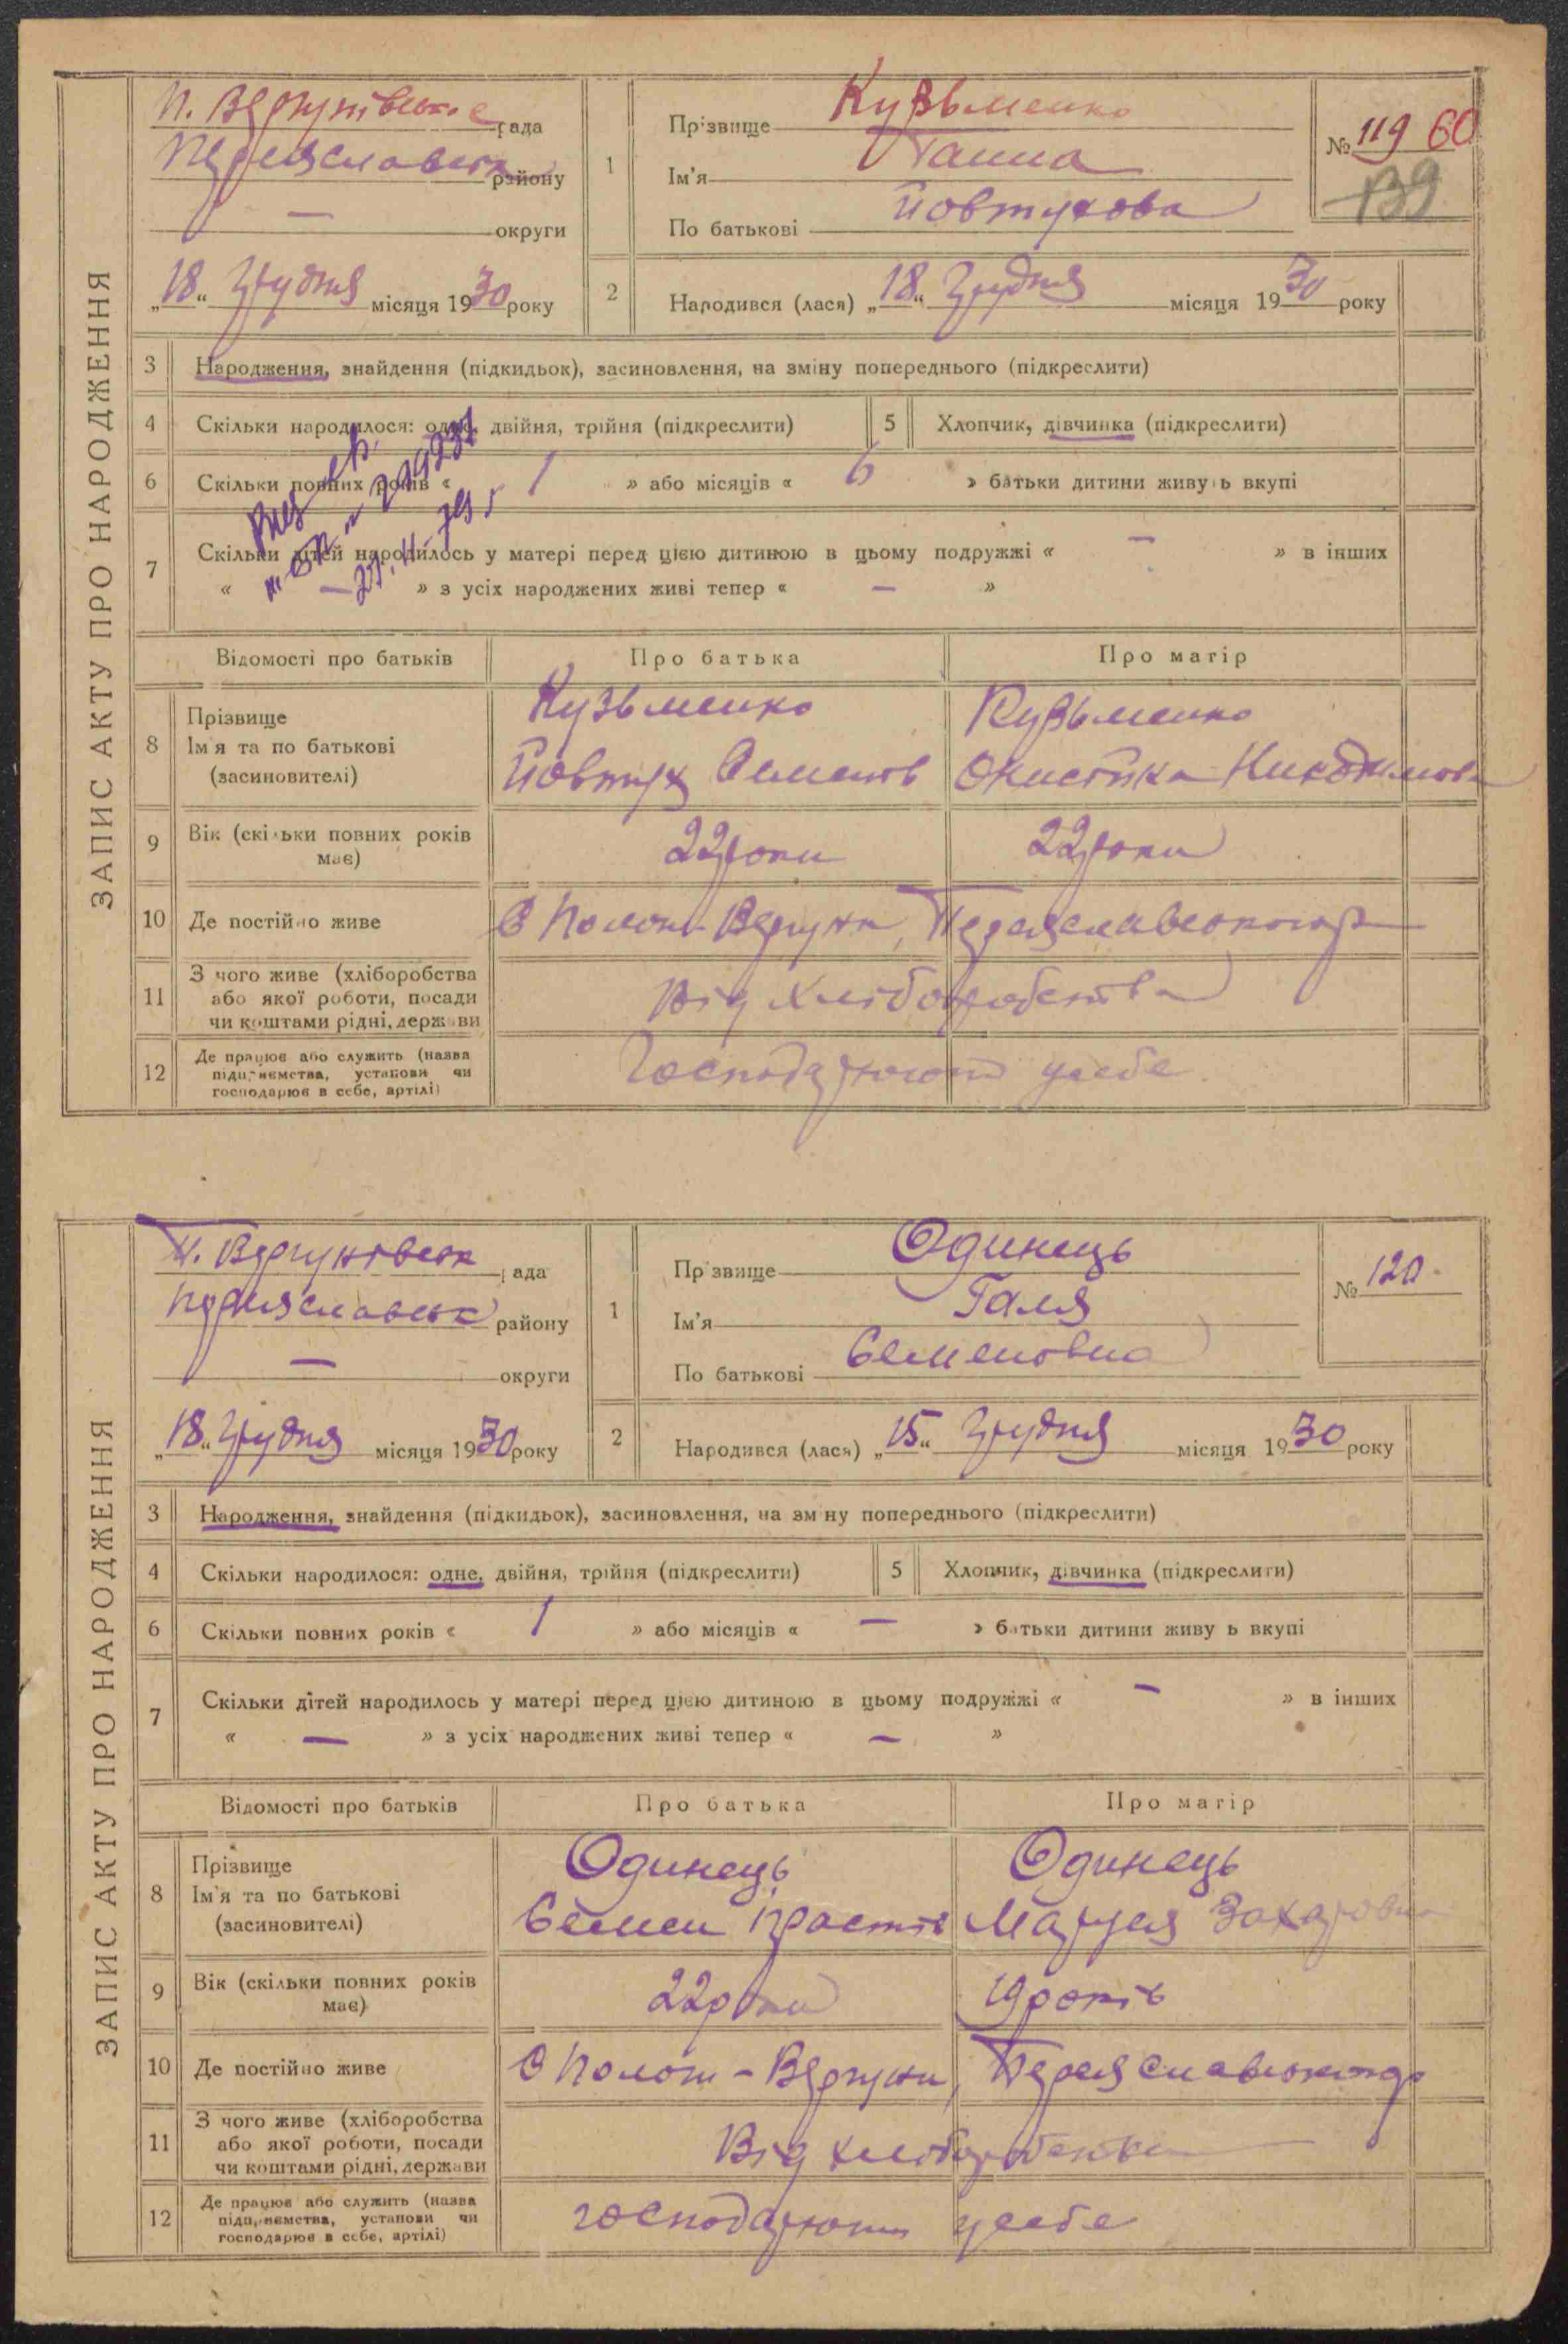 ЗАПИС АКТУ ПРО НАРОДЖЕННЯ
П. Вергунівська рада
Переяславськ району
— округи
„18“ Грудня місяця 1930 року
1
Прізвище Кузьменко
Ім'я Ганна
По батькові Йовтухова
№ 119 60
139
2
Народився (лася) „18“ Грудня місяця 1930 року
3 Народження, знайдення (підкидьок), засиновлення, на зміну попереднього (підкреслити)
4 Скільки народилося: одне, двійня, трійня (підкреслити) 5 Хлопчик, дівчинка (підкреслити)
6 Скільки повних років « 1 » або місяців « 6 » батьки дитини живуть вкупі
7 Скільки дітей народилось у матері перед цією дитиною в цьому подружжі « — » в інших
« — » з усіх народжених живі тепер « — »
Відомості про батьків Про батька Про матір
8 Прізвище
Ім'я та по батькові
(засиновителі)
Кузьменко
Йовтух Семенов
Кузьменко
9 Вік (скільки повних років має) 22 роки 22 роки
10 Де постійно живе С Полого-Вергуни, Переяславського р
11 З чого живе (хліборобства
або якої роботи, посади
чи коштами рідні, держави
Від хліборобства
12 Де працює або служить (назва
підприємства, установи чи
господарює в себе, артілі)
Господарюють у себе
ЗАПИС АКТУ ПРО НАРОДЖЕННЯ
П. Вергунівськ рада
Переяславськ району
— округи
„18“ Грудня місяця 1930 року
1
Прізвище Одинець
Ім'я Галя
По батькові Семеновна
№ 120
2
Народився (лася) „15“ Грудня місяця 1930 року
3 Народження, знайдення (підкидьок), засиновлення, на зміну попереднього (підкреслити)
4 Скільки народилося: одне, двійня, трійня (підкреслити) 5 Хлопчик, дівчинка (підкреслити)
6 Скільки повних років « 1 » або місяців « — » батьки дитини живуть вкупі
7 Скільки дітей народилось у матері перед цією дитиною в цьому подружжі « — » в інших
« — » з усіх народжених живі тепер « — »
Відомості про батьків Про батька Про матір
8 Прізвище
Ім'я та по батькові
(засиновителі)
Одинець
Семен
Одинець
Маруся Захаровна
9 Вік (скільки повних років має) 22 роки 19 років
10 Де постійно живе С Полого-Вергуни, Переяславського р
11 З чого живе (хліборобства
або якої роботи, посади
чи коштами рідні, держави
Від хліборобства
12 Де працює або служить (назва
підприємства, установи чи
господарює в себе, артілі)
господарюють у себе